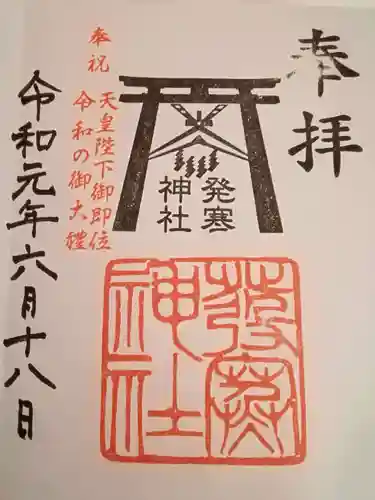 奉拝
発寒
神社
発寒
神社
奉祝
天皇陛下御即位
令和の御大禮
令和元年六月十八日